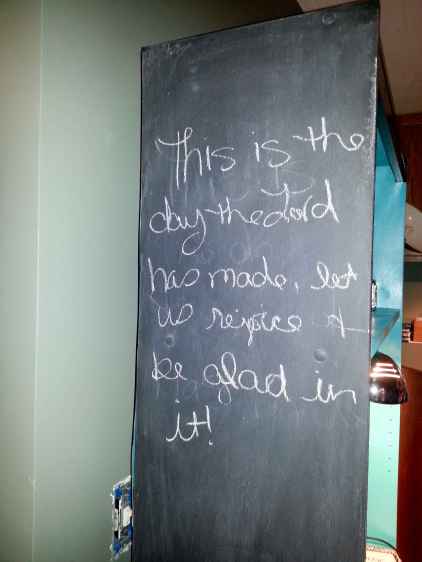 This is the
day the Lord
has made, let
us rejoice +
be glad in
it!